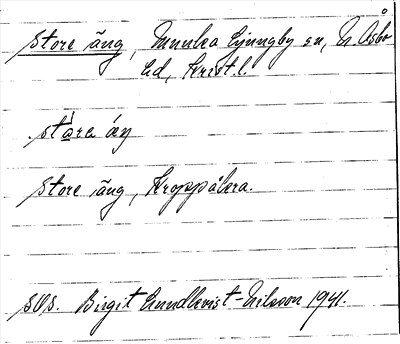 Store äng, Munka Ljungby sn, N. Åsbo
hd, Krist. l.
stọra äŋ
Store äng, Kroppåkra.
S.O.S. Birgit Lundkvist-Nilsson 1941.